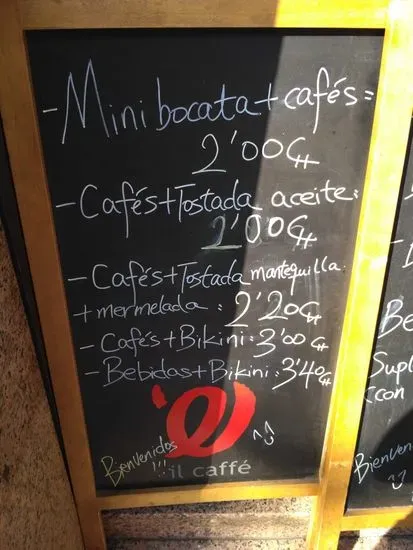 - Mini bocata + cafés =
2'00€
- Cafés + Tostada aceite:
2'00€
- Cafés + Tostada mantequilla
+ mermelada : 2'20€
- Cafés + Bikini : 3'00€
- Bebidas + Bikini : 3'40€
Bienvenidos
!!!
il caffé
Be
Supl
(con
Bienven